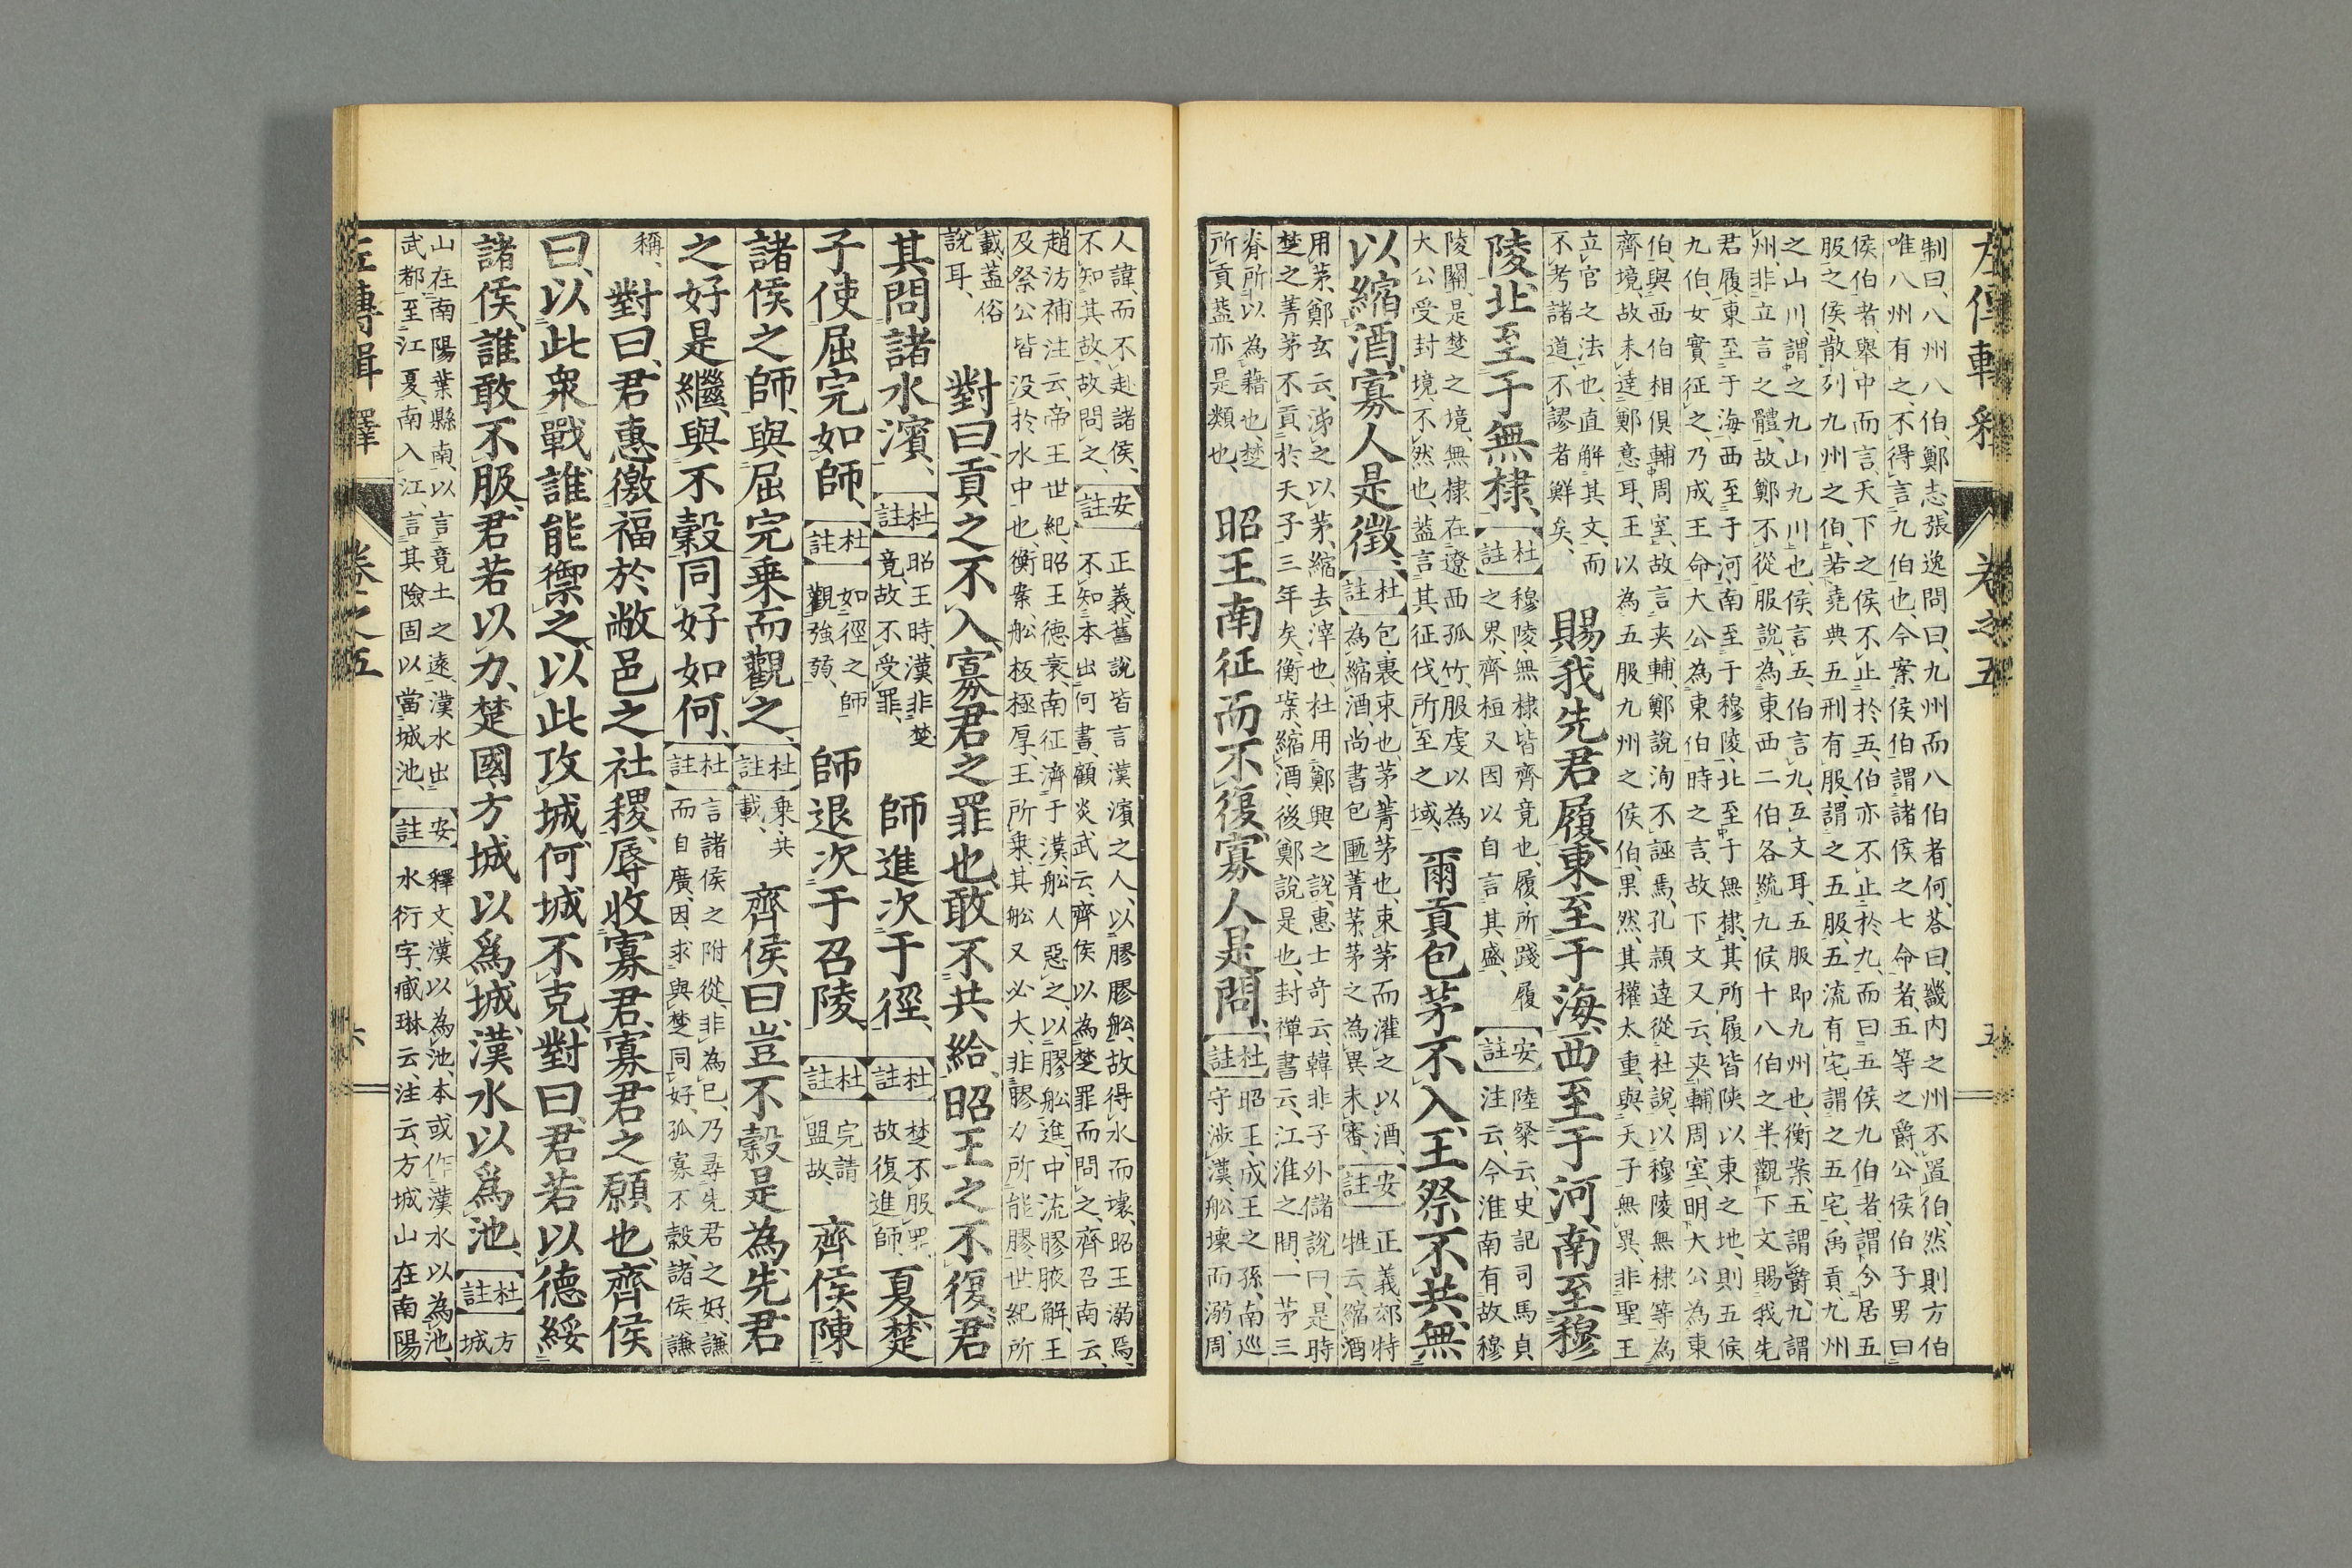 左傳輯釋　卷之五　五
制曰、八州八伯、鄭志、張逸問曰、九州而八伯者何、荅曰、畿内之州不置伯、然則方伯
唯八州有之、不得言九伯也、今案侯伯謂諸侯之七命者、五等之爵、公侯伯子男、曰
侯伯者、舉中而言、天下之侯不止於五、伯亦不止於九、而曰五侯九伯者、謂今居五
服之侯、散列九州之伯、若堯典五刑有服、謂之五服、五流有宅、謂之五宅、禹貢九州
之山川、謂之九山九川也、侯言五、伯言九、互文耳、五服即九州也、衡案、五謂爵、九謂
州、非立言之體、故鄭不從服説、為東西二伯各統九侯十八伯之半、觀下文賜我先
君履、東至于海、西至于河、南至于穆陵、北至于無棣、其所履皆陝以東之地、則五侯
九伯、女實征之、乃成王命大公為東伯時之言、故下文又云、夾輔周室、明大公為東
伯、與西伯相俱輔周室、故言夾輔、鄭説洵不誣焉、孔頴達從杜説、以穆陵無棣等為
齊境、故未達鄭意耳、王以為五服九州之侯伯、果然、其權太重、與天子無異、非聖王
立官之法也、直解其文、而
不考諸道、不謬者鮮矣、
賜我先君履、東至于海、西至于河、南至于穆
陵、北至于無棣、
杜註
穆陵無棣、皆齊竟也、履、所踐履
之界、齊桓又因以自言其盛、
安註
陸粲云、史記司馬貞
注云、今淮南有故穆
陵關、是楚之境、無棣在遼西孤竹、服虔以為
大公受封境、不然也、葢言其征伐所至之域、
爾貢包茅不入、王祭不共、無
以縮酒、寡人是徵、
杜註
包、裹束也、茅、菁茅也、束茅而灌之以酒、
為縮酒、尚書包匭菁茅、茅之為異未審、
安註
正義、郊特
牲云、縮酒
用茅、鄭玄云、泲之以茅、縮去滓也、杜用鄭興之説、惠士奇云、韓非子外儲説曰、是時
楚之菁茅不貢於天子三年矣、衡案、縮酒、後鄭説是也、封禪書云、江淮之間、一茅三
脊、所以為藉也、楚
所貢葢亦是類也、
昭王南征而不復、寡人是問、
杜註
昭王、成王之孫、南巡
守渉漢、舩壞而溺、周
人諱、而不赴諸侯、
不知其故、故問之、
安註
正義、舊説皆言漢濱之人、以膠膠舩、故得水而壞、昭王溺焉、
不知本出何書、顧炎武云、齊侯以為楚罪而問之、齊召南云、
趙汸補注云、帝王世紀、昭王德衰、南征濟于漢、舩人惡之、以膠舩進、中流膠液解、王
及祭公皆没於水中也、衡案、舩板極厚、王所乗、其舩又必大、非膠力所能膠、世紀所
載、葢俗
説耳、
對曰、貢之不入、寡君之罪也、敢不共給、昭王之不復、君
其問諸水濱、
杜註
昭王時、漢非楚
竟、故不受罪、
師進次于徑、
杜註
楚不服罪、
故復進師、
夏、楚
子使屈完如師、
杜註
如徑之師
觀強弱、
師退次于召陵、
杜註
完請
盟故、
齊侯陳
諸侯之師、與屈完乗而觀之、
杜註
乗、共
載、
齊侯曰、豈不穀是為、先君
之好是繼、與不穀同好如何、
杜註
言諸侯之附從、非為己、乃尋先君之好、謙
而自廣、因求與楚同好、孤寡不穀、諸侯謙
稱、
對曰、君惠徼福於敝邑之社稷、辱收寡君、寡君之願也、齊侯
曰、以此衆戰、誰能禦之、以此攻城、何城不克、對曰、君若以德綏
諸侯、誰敢不服、君若以力、楚國方城以爲城、漢水以爲池、
杜註
方
城
山在南陽葉縣南、以言竟土之遠、漢水出
武都、至江夏南入江、言其險固以當城池、
安註
釋文、漢以為池、本或作漢水以為池、
水衍字、臧琳云、注云、方城山在南陽
左傳輯釋　卷之五　六